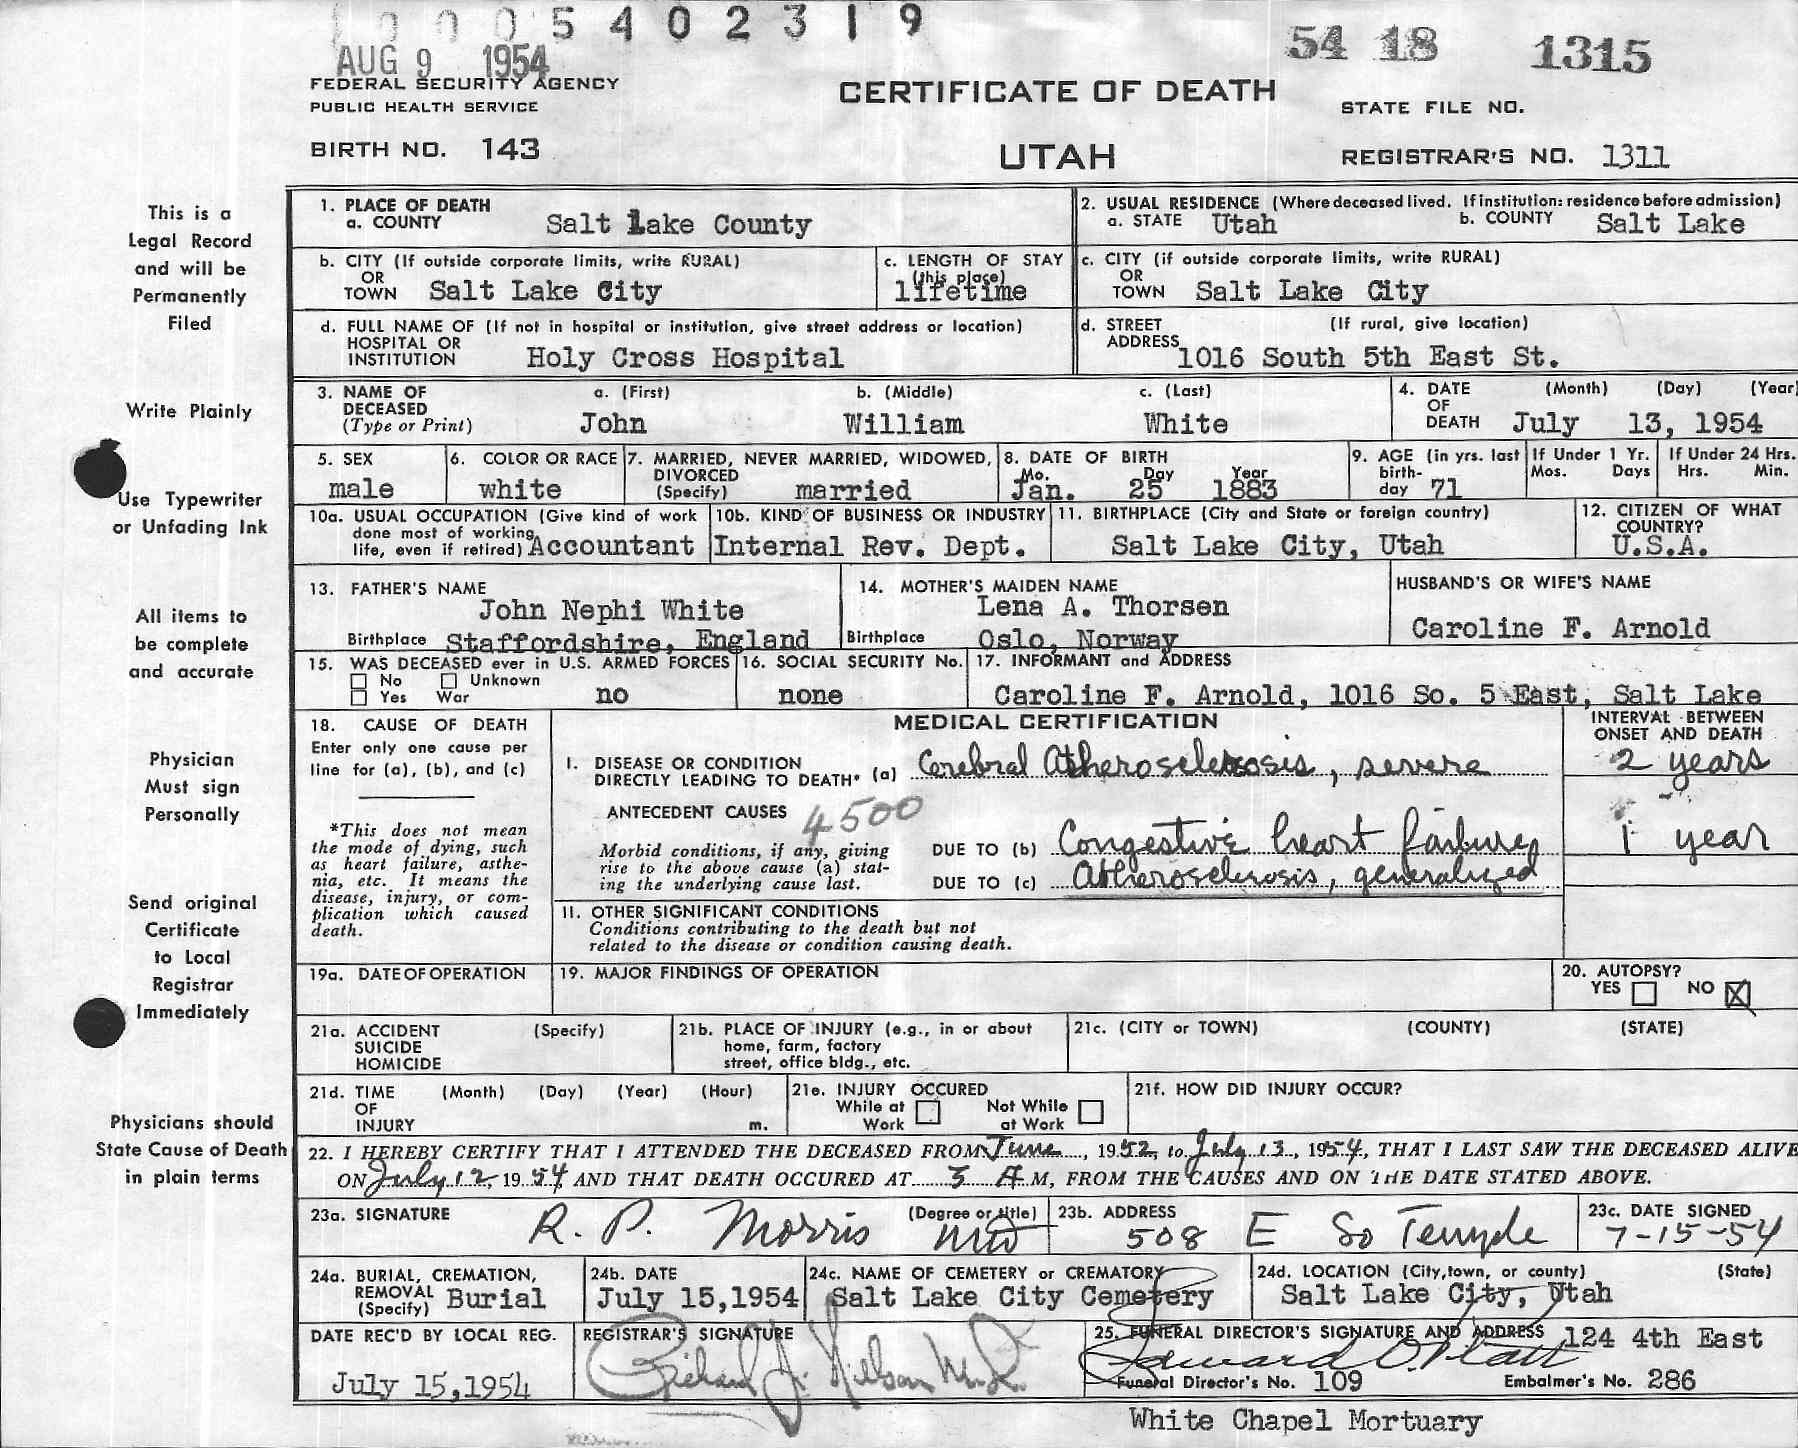 0005402319
AUG 9 1954
54 18 1315
FEDERAL SECURITY AGENCY
PUBLIC HEALTH SERVICE
CERTIFICATE OF DEATH
STATE FILE NO.
BIRTH NO. 143
UTAH
REGISTRAR'S NO. 1311
This is a
Legal Record
and will be
Permanently
Filed
Write Plainly
Use Typewriter
or Unfading Ink
All items to
be complete
and accurate
Physician
Must sign
Personally
Send original
Certificate
to Local
Registrar
Immediately
Physicians should
State Cause of Death
in plain terms
1. PLACE OF DEATH
a. COUNTY Salt Lake County
2. USUAL RESIDENCE (Where deceased lived. If institution: residence before admission)
a. STATE Utah b. COUNTY Salt Lake
b. CITY (If outside corporate limits, write RURAL)
OR
TOWN Salt Lake City
c. LENGTH OF STAY
(this place)
lifetime
c. CITY (if outside corporate limits, write RURAL)
OR
TOWN Salt Lake City
d. FULL NAME OF (If not in hospital or institution, give street address or location)
HOSPITAL OR
INSTITUTION Holy Cross Hospital
d. STREET (If rural, give location)
ADDRESS 1016 South 5th East St.
3. NAME OF a. (First) b. (Middle) c. (Last)
DECEASED
(Type or Print) John William White
4. DATE (Month) (Day) (Year)
OF
DEATH July 13, 1954
5. SEX
male
6. COLOR OR RACE
white
7. MARRIED, NEVER MARRIED, WIDOWED,
DIVORCED
(Specify) married
8. DATE OF BIRTH
Mo. Day Year
Jan. 25 1883
9. AGE (in yrs. last
birth-
day 71
If Under 1 Yr.
Mos. Days
If Under 24 Hrs.
Hrs. Min.
10a. USUAL OCCUPATION (Give kind of work
done most of working
life, even if retired) Accountant
10b. KIND OF BUSINESS OR INDUSTRY
Internal Rev. Dept.
11. BIRTHPLACE (City and State or foreign country)
Salt Lake City, Utah
12. CITIZEN OF WHAT
COUNTRY?
U.S.A.
13. FATHER'S NAME
John Nephi White
Birthplace Staffordshire, England
14. MOTHER'S MAIDEN NAME
Lena A. Thorsen
Birthplace Oslo, Norway
HUSBAND'S OR WIFE'S NAME
Caroline F. Arnold
15. WAS DECEASED ever in U.S. ARMED FORCES
No Unknown
Yes War no
16. SOCIAL SECURITY No.
none
17. INFORMANT and ADDRESS
Caroline F. Arnold, 1016 So. 5 East, Salt Lake
18. CAUSE OF DEATH
Enter only one cause per
line for (a), (b), and (c)
*This does not mean
the mode of dying, such
as heart failure, asthe-
nia, etc. It means the
disease, injury, or com-
plication which caused
death.
MEDICAL CERTIFICATION
INTERVAL BETWEEN
ONSET AND DEATH
I. DISEASE OR CONDITION
DIRECTLY LEADING TO DEATH* (a) Cerebral Atherosclerosis, severe 2 years
ANTECEDENT CAUSES 4500
Morbid conditions, if any, giving
rise to the above cause (a) stat-
ing the underlying cause last.
DUE TO (b) Congestive heart failure, 1 year
DUE TO (c) Atherosclerosis, generalized
II. OTHER SIGNIFICANT CONDITIONS
Conditions contributing to the death but not
related to the disease or condition causing death.
19a. DATE OF OPERATION
19. MAJOR FINDINGS OF OPERATION
20. AUTOPSY?
YES NO X
21a. ACCIDENT (Specify)
SUICIDE
HOMICIDE
21b. PLACE OF INJURY (e.g., in or about
home, farm, factory
street, office bldg., etc.
21c. (CITY or TOWN) (COUNTY) (STATE)
21d. TIME (Month) (Day) (Year) (Hour)
OF
INJURY m.
21e. INJURY OCCURED
While at Not While
Work at Work
21f. HOW DID INJURY OCCUR?
22. I HEREBY CERTIFY THAT I ATTENDED THE DECEASED FROM June, 1952, to July 13, 1954, THAT I LAST SAW THE DECEASED ALIVE
ON July 12, 1954 AND THAT DEATH OCCURED AT 3 A M, FROM THE CAUSES AND ON THE DATE STATED ABOVE.
23a. SIGNATURE (Degree or title)
R. P. Morris MD
23b. ADDRESS
508 E So Temple
23c. DATE SIGNED
7-15-54
24a. BURIAL, CREMATION,
REMOVAL
(Specify) Burial
24b. DATE
July 15,1954
24c. NAME OF CEMETERY or CREMATORY
Salt Lake City Cemetery
24d. LOCATION (City, town, or county) (State)
Salt Lake City, Utah
DATE REC'D BY LOCAL REG.
July 15,1954
REGISTRAR'S SIGNATURE
Richard J. Nelson
25. FUNERAL DIRECTOR'S SIGNATURE AND ADDRESS 124 4th East
Edward O. Platt
Funeral Director's No. 109 Embalmer's No. 286
White Chapel Mortuary